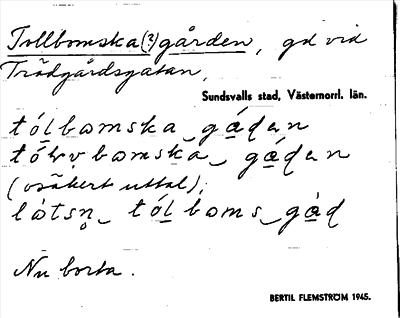 Tollbomska(?)gården, gd vid
Trädgårdsgatan,
Sundsvalls stad, Västernorrl. län.
tólbomska gádan
tóbomska gádan
(osäkert uttal);
látsn tólboms gàd
Nu borta.
BERTIL FLEMSTRÖM 1945.